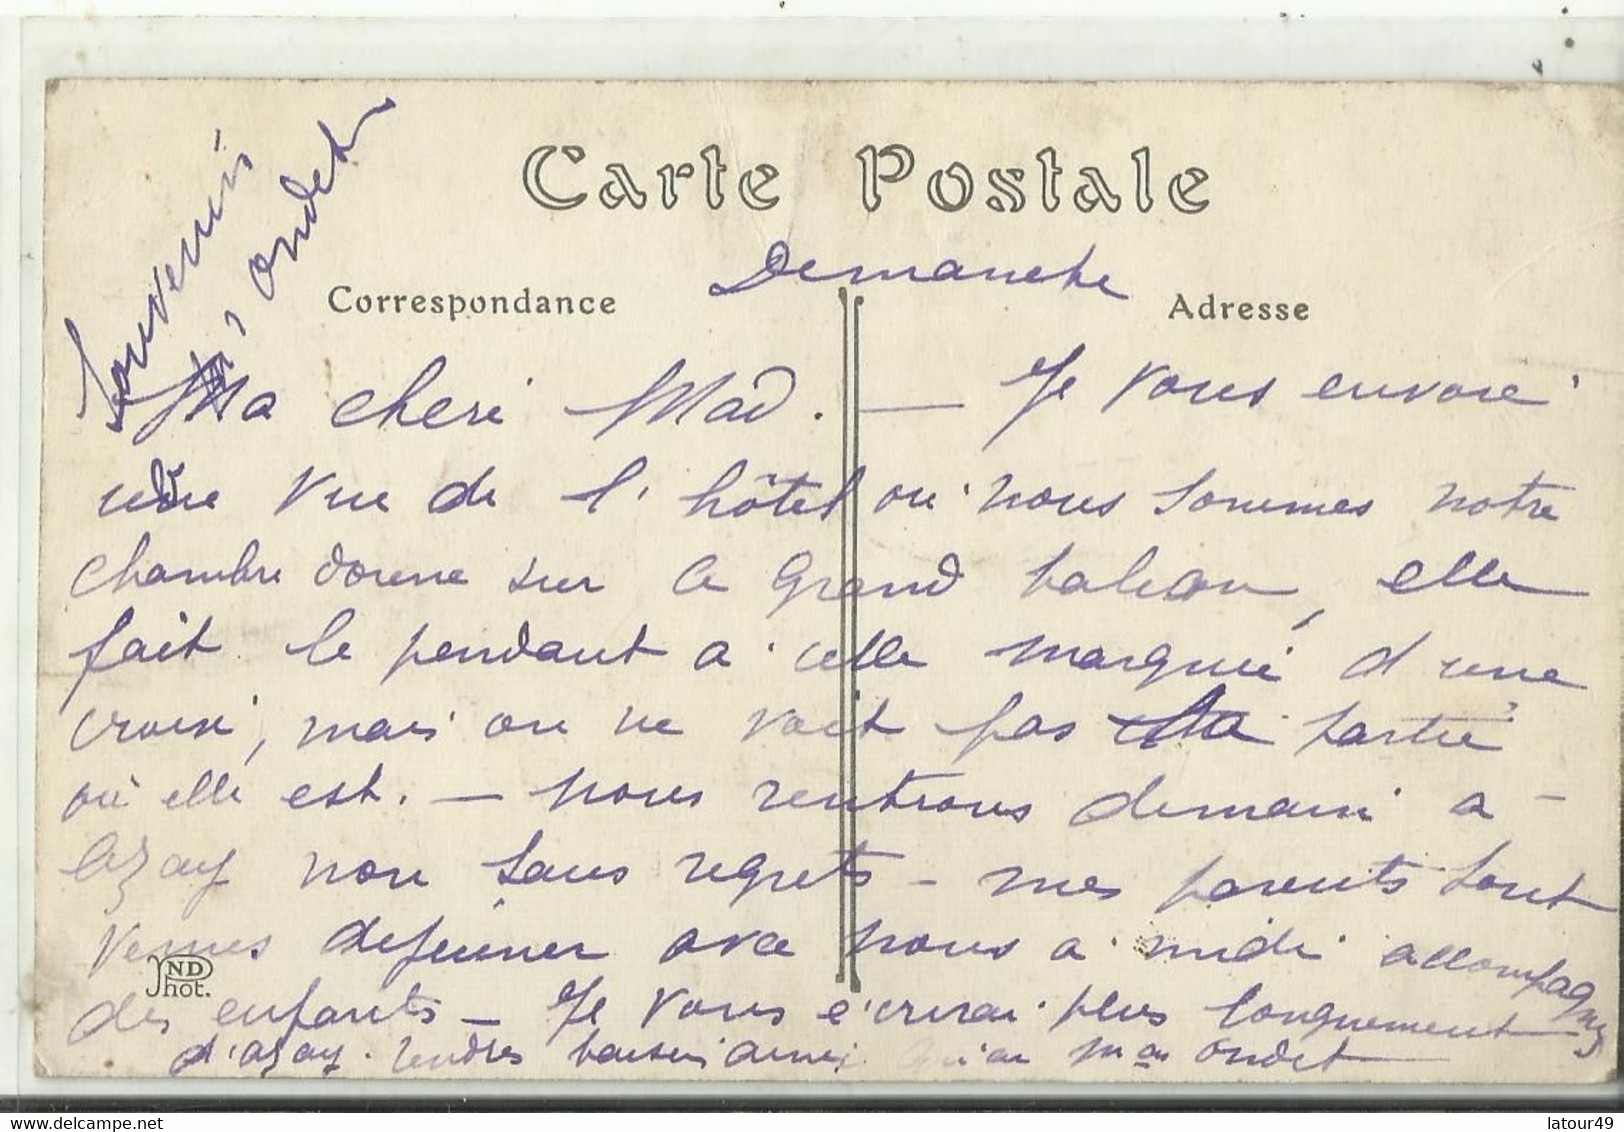 Carte Postale
Souvenirs
à Mr Ondet
Correspondance
Demanche
Adresse
Ma cheri Mad. — Je vous envoie
une vue de l'hôtel où nous sommes notre
chambre donne sur le grand balcon, elle
fait le pendant à celle marquée d une
croix, mais on ne voit pas la partie
où elle est. — nous rentrons demain à -
Azay non sans regrets - mes parents sont
venus dejeuner avec nous à midi accompagnés
des enfants - Je vous écrirai plus longuement
d'azay. tendres baisers ainsi qu'au Mr Ondet
ND
Phot.
latour49